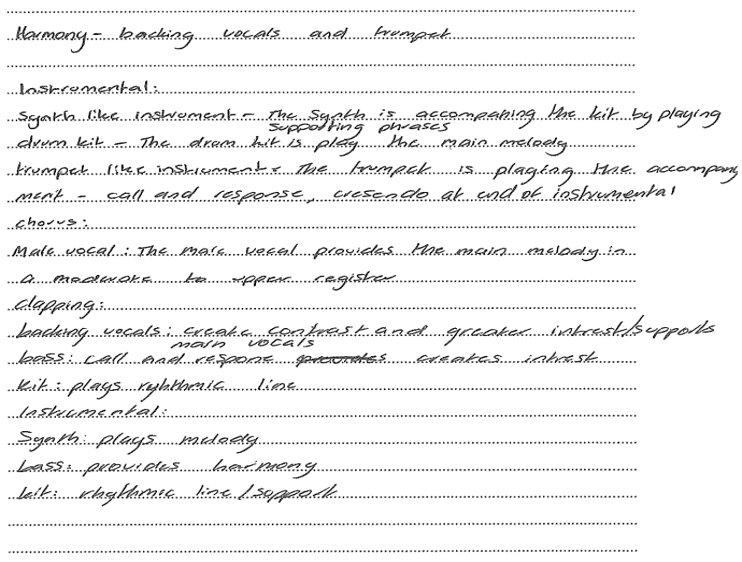 Harmony - backing vocals and trumpet
Instrumental:
Synth like instrument - The Synth is accompaning the kit by playing
supporting phrases
drum kit - The drum kit is play the main melody
trumpet like instrument - The trumpet is playing the accompany
ment - call and response, cresendo at end of instrumental
chorus:
Male vocal: The male vocal provides the main melody in
a moderate to upper register
clapping:
backing vocals: create contrast and greater intrest/supports
main vocals
bass: call and respone creates intrest
Kit: plays ryhthmic line
Instrumental:
Synth: plays melody
bass: provides harmony
kit: rhythmic line / support